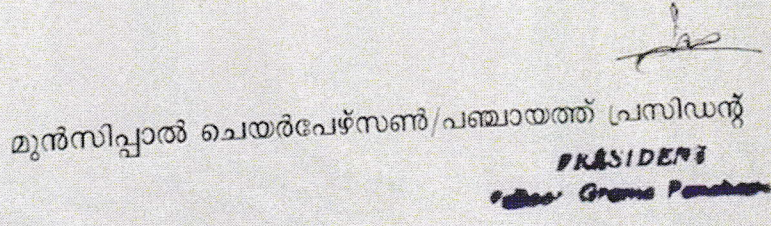 മുൻസിപ്പാൽ ചെയർപേഴ്സൺ/പഞ്ചായത്ത് പ്രസിഡന്റ്
PRESIDENT
Grama